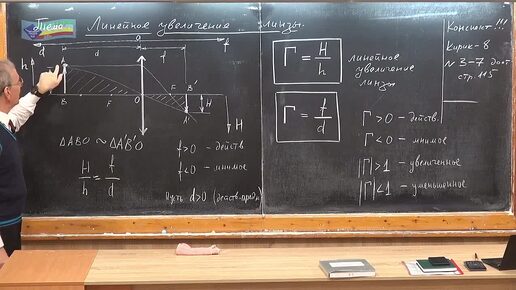 Тема
Линейное увеличение линзы.
d O f
h
A
B F O F B'
H
A'
H
ΔABO ~ ΔA'B'O
H/h = f/d
f>0 - действ
f<0 - мнимое
Пусть d>0
Г = H/h
линейное
увеличение
линзы
Г = f/d
Г > 0 - действ.
Г < 0 - мнимое
|Г| > 1 - увеличенное
|Г| < 1 - уменьшенное
Конспект!!!
Кирик-8
№ 3-7 дост
стр. 115